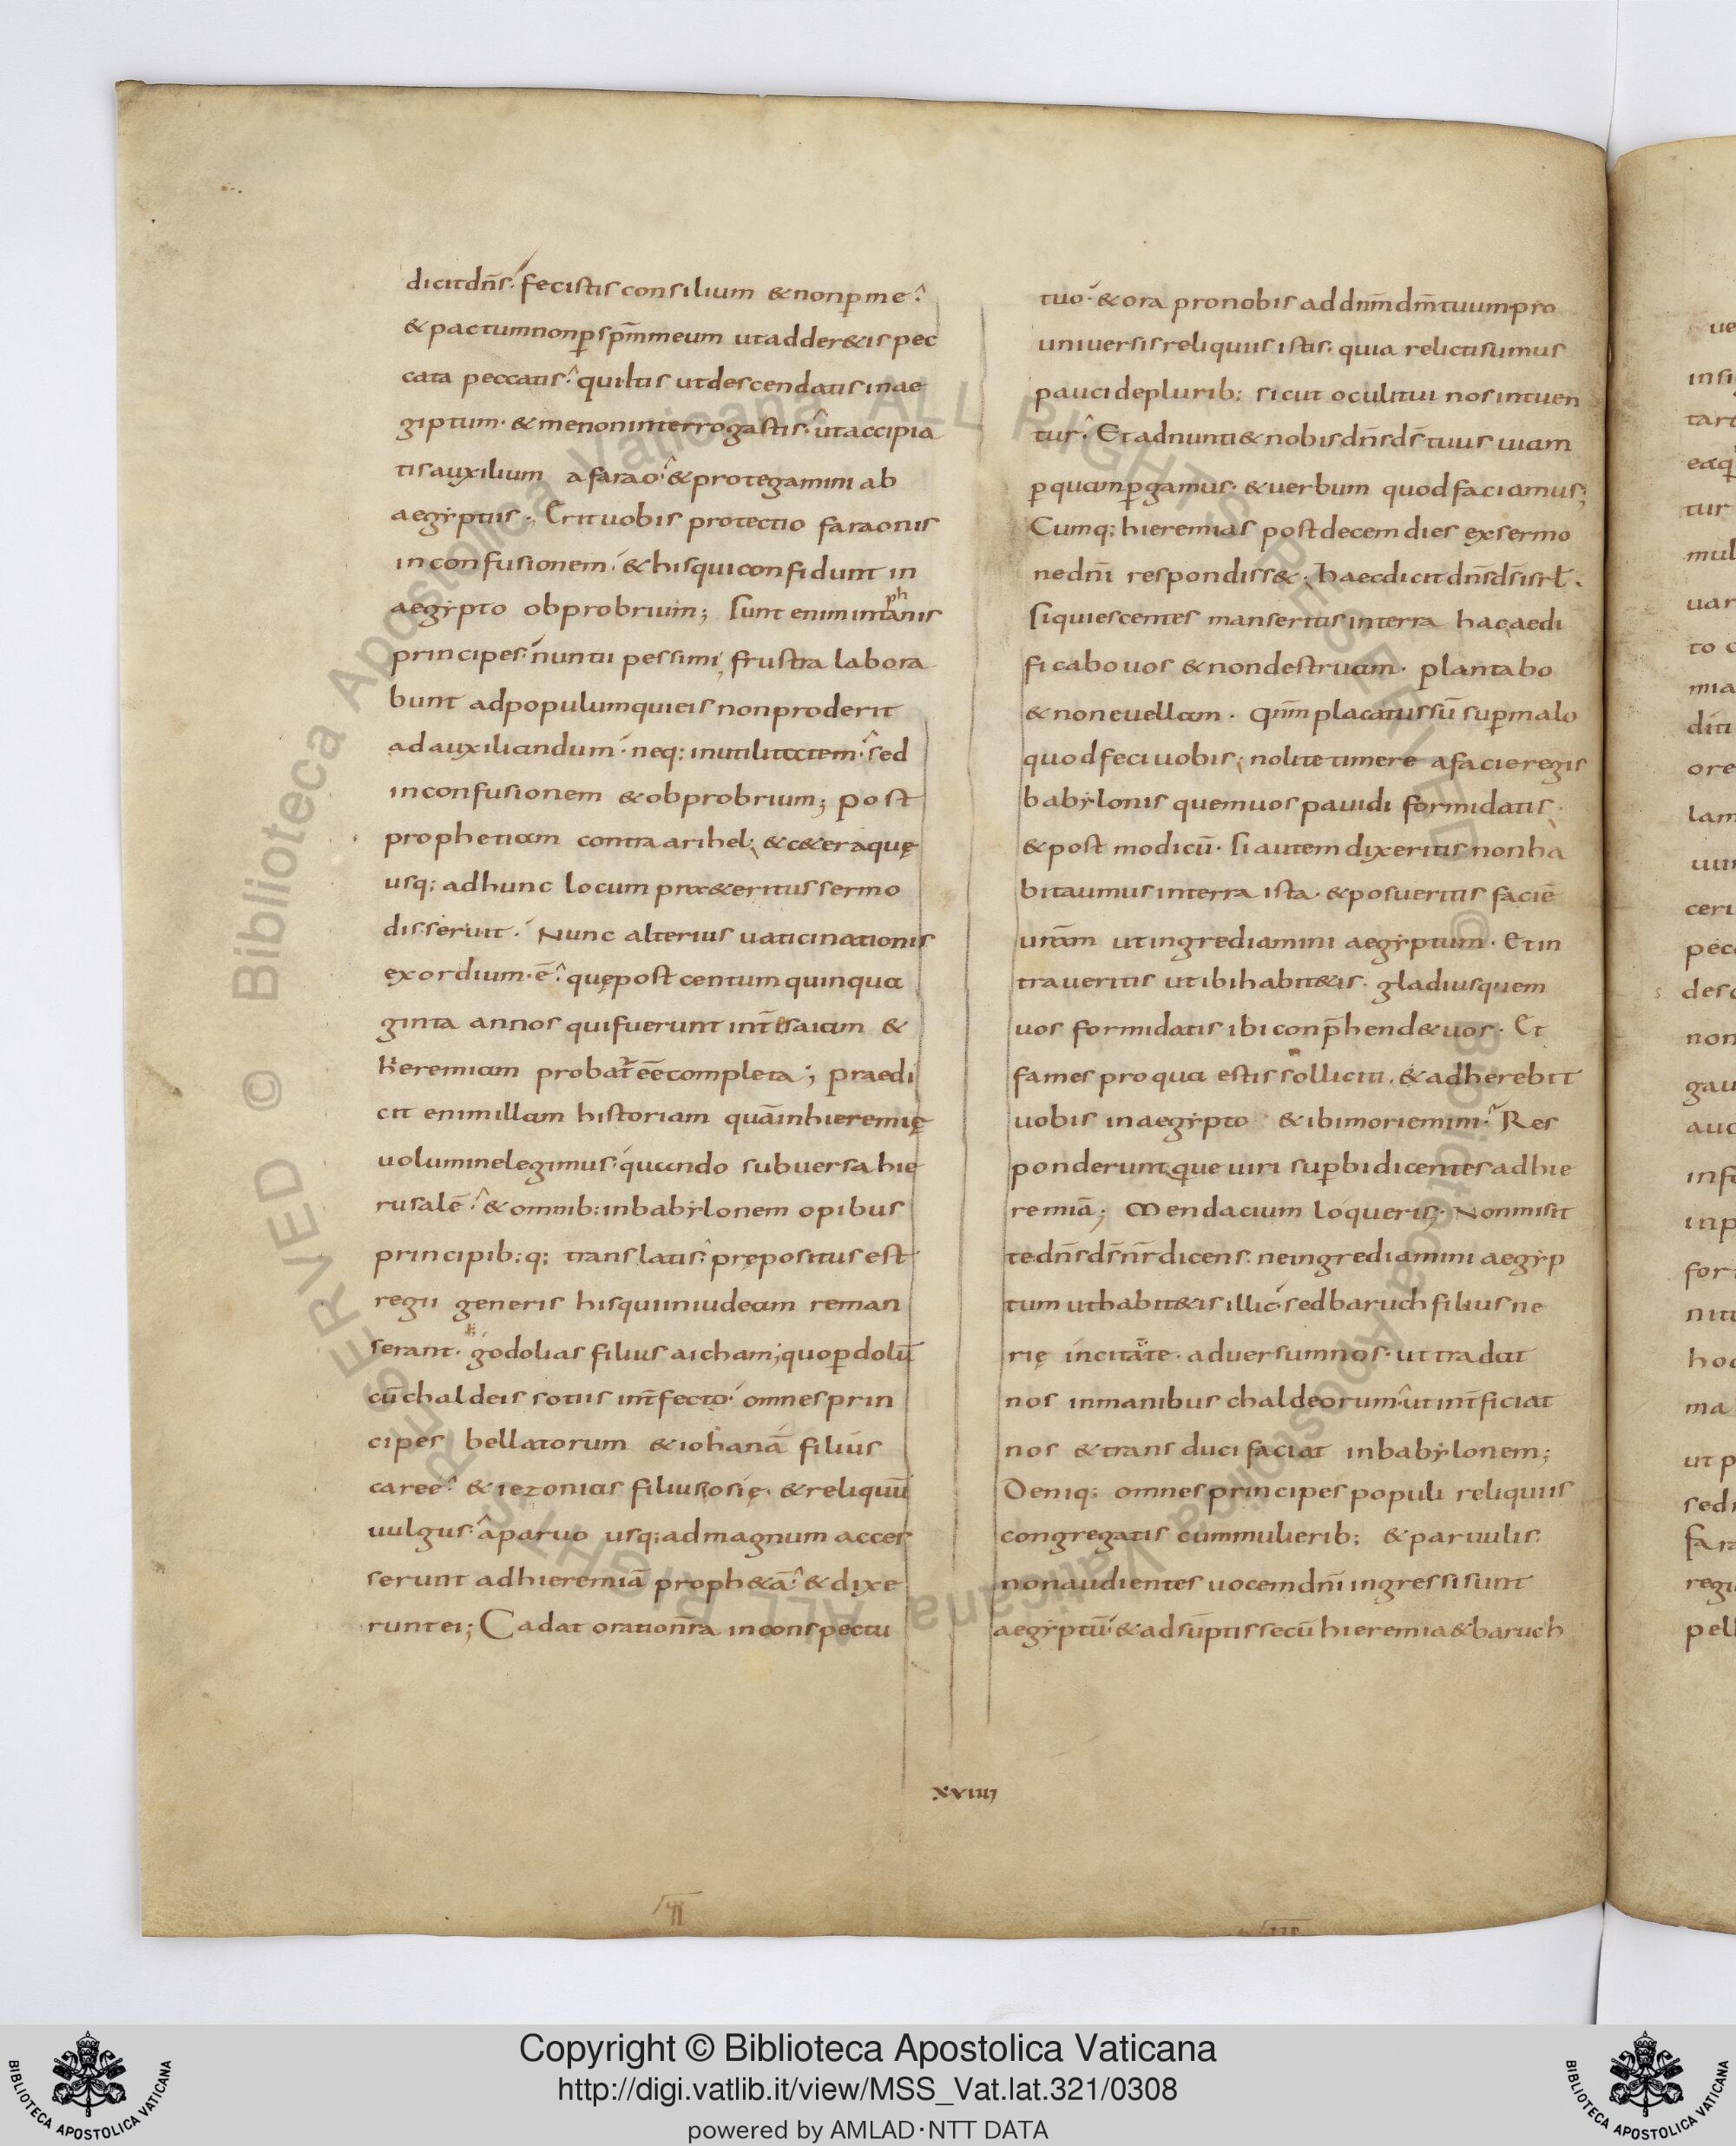 dicitdn̄s· fecistis consilium & nonꝑme·
& pactum nonꝑ sp̄m meum ut adder&is pec
cata peccatis· quiltis utdescendatis inae
giptum· & me noninterrogastis· ut accipia
tis auxilium a farao· & protegamini ab
aegyptiis·, Erit uobis protectio faraonis
in confusionem· & hisqui confidunt in
aegypto obprobrium; Sunt enim intanis
ph
principes· nuntii pessimi, frustra labora
bunt adpopulum quieis nonproderit
ad auxiliandum· neq; inutilitatem· sed
inconfusionem & obprobrium; post
prophetiam contra arihel· & c&eraquę
usq; adhunc locum prox&eritus sermo
disseruit· Nunc alterius uaticinationis
exordium· ē· quępost centum quinqua
ginta annos quifuerunt int̄ esaiam &
hieremiam probat̄ eē completa·; praedi
cit enim illam historiam quāinhieremię
uoluminelegimus· quando subuersa hie
rusalē· & omnib: inbabylonem opibus
principib: q; translatis· prępositus est
regii generis hisquiiniudeam reman
serant· godolias filius aicham; quoꝑdolū
cū chaldeis sotiis int̄fecto· omnes prin
cipes bellatorum & iohanā filius
careę· & iezonias filius iosię· & reliquū
uulgus· aparuo usq; ad magnum acces
serunt adhieremiā proph&ā· & dixe
runt ei; Cadat oration̄ra inconspectu
tuo· & ora pronobis ad dn̄m dm̄ tuum pro
uniuersis reliquiis istis· quia relicti sumus
pauci deplurib: sicut oculi tui nos intuen
tur· Et adnunti& nobis dn̄s ds̄ tuus uiam
ꝑquamꝑgamus· & uerbum quod faciamus;
Cumq; hieremias post decem dies ex sermo
ne dn̄i respondiss&· haec dicit dn̄s ds̄ isrł·
Si quiescentes manseritis interra hac, aedi
ficabo uos & non destruam· plantabo
& non euellam· qnm̄ placatus sū suꝑ malo
quod feci uobis; nolite timere afacie regis
babylonis quem uos pauidi formidatis·
& post modicū· Si autem dixeritis non ha
bitauimus interra ista· & posueritis faciē
urām ut ingrediamini aegyptum· Et in
traueritis ut ibi habit&is· gladius quem
uos formidatis ibi conp̄hend& uos· Et
fames pro qua estis solliciti· & adherebit
uobis inaegypto & ibi moriemini· Res
ponderunt que uiri suꝑbi dicentes ad hie
remiā; Mendacium loqueris; Non misit
te dn̄s ds̄ nr̄ dicens· ne ingrediamini aegyp
tum ut habit&is illic· sed baruch filius ne
rię incitat̄ te· aduersum nos· ut tradat
nos inmanibus chaldeorum· ut int̄ficiat
nos & transduci faciat inbabylonem;
Deniq; omnes principes populi reliquiis
congregatis cum mulierib; & paruulis·
non audientes uocem dn̄i ingressi sunt
aegyptū· & adsūptis secū hieremia & baruch
xviiii
ue
tart
tur
mul
uar
mia
ore
lam
ceri
pecc
desc
non
gau
auc
inf
inp
for
nitu
hoc
ma
ut p
regi
pell
© Biblioteca Apostolica Vaticana ALL RIGHTS RESERVED © Biblioteca Apostolica Vaticana ALL RIGHTS RESERVED
Copyright © Biblioteca Apostolica Vaticana
http://digi.vatlib.it/view/MSS_Vat.lat.321/0308
powered by AMLAD·NTT DATA
BIBLIOTECA APOSTOLICA VATICANA
BIBLIOTECA APOSTOLICA VATICANA